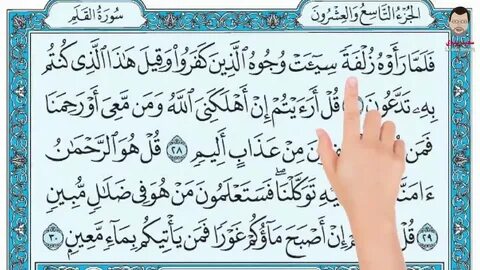 الجُزْءُ التَّاسِعُ وَالعِشْرُونَ
سُورَةُ القَلَمِ
فَلَمَّا رَأَوْهُ زُلْفَةً سِيٓـَٔتْ وُجُوهُ ٱلَّذِينَ كَفَرُوا۟ وَقِيلَ هَٰذَا ٱلَّذِى كُنتُم
بِهِۦ تَدَّعُونَ قُلْ أَرَءَيْتُمْ إِنْ أَهْلَكَنِىَ ٱللَّهُ وَمَن مَّعِىَ أَوْ رَحِمَنَا
فَمَن مِنْ عَذَابٍ أَلِيمٍ ٢٨ قُلْ هُوَ ٱلرَّحْمَٰنُ
ءَامَنَّا تَوَكَّلْنَا ۖ فَسَتَعْلَمُونَ مَنْ هُوَ فِى ضَلَٰلٍ مُّبِينٍ
٢٩ قُلْ إِنْ أَصْبَحَ مَآؤُكُمْ غَوْرًا فَمَن يَأْتِيكُم بِمَآءٍ مَّعِينٍ ٣٠